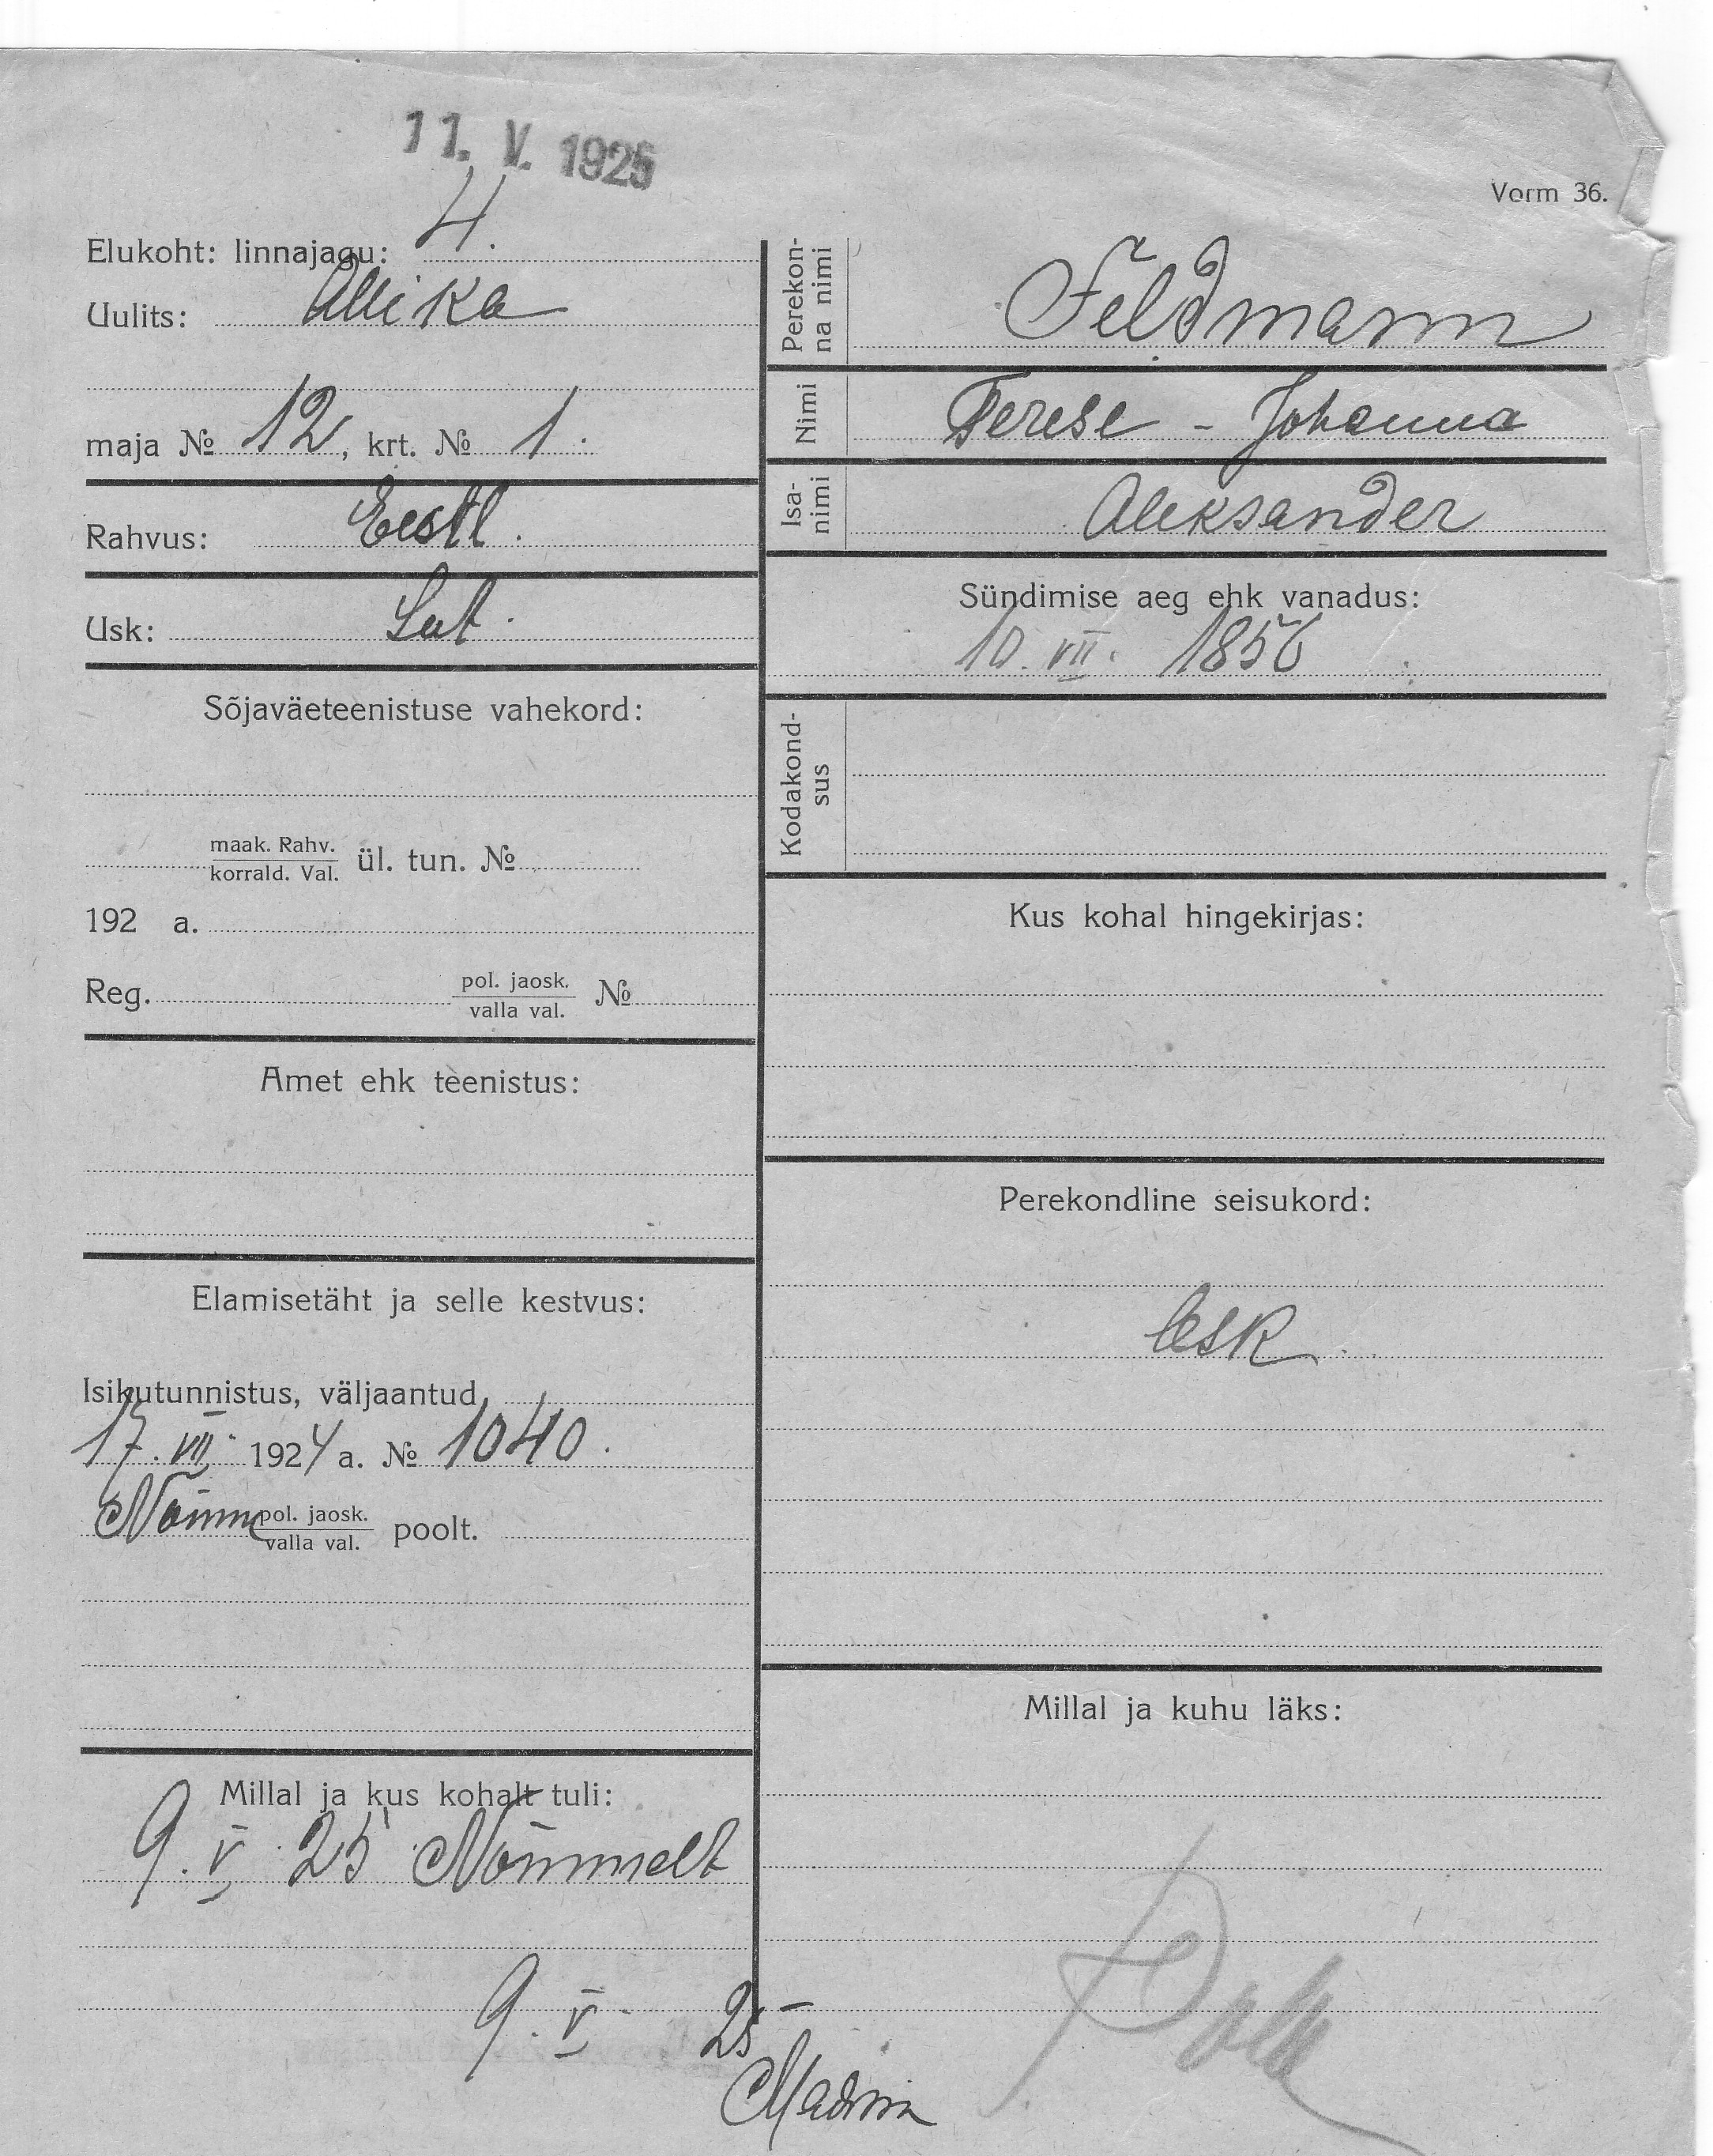 11. V. 1925
Vorm 36.
Elukoht: linnajagu: 4.
Uulits: Allika
maja № 12, krt. № 1.
Rahvus: Eestl.
Usk: Lut.
Sõjaväeteenistuse vahekord:
maak. Rahv.
korrald. Val. ül. tun. №
192 a.
Reg. pol. jaosk. №
valla val.
Amet ehk teenistus:
Elamisetäht ja selle kestvus:
Isikutunnistus, väljaantud
17. VII. 1924 a. № 1040.
Nõmme pol. jaosk. poolt.
valla val.
Millal ja kus kohalt tuli:
9. V. 25 Nõmmelt
9. V. 25
Perekonna nimi Feldmann
Nimi Terese - Johanna
Isanimi Aleksander
Sündimise aeg ehk vanadus:
10. VII. 1856
Kodakondsus
Kus kohal hingekirjas:
Perekondline seisukord:
lesk.
Millal ja kuhu läks: